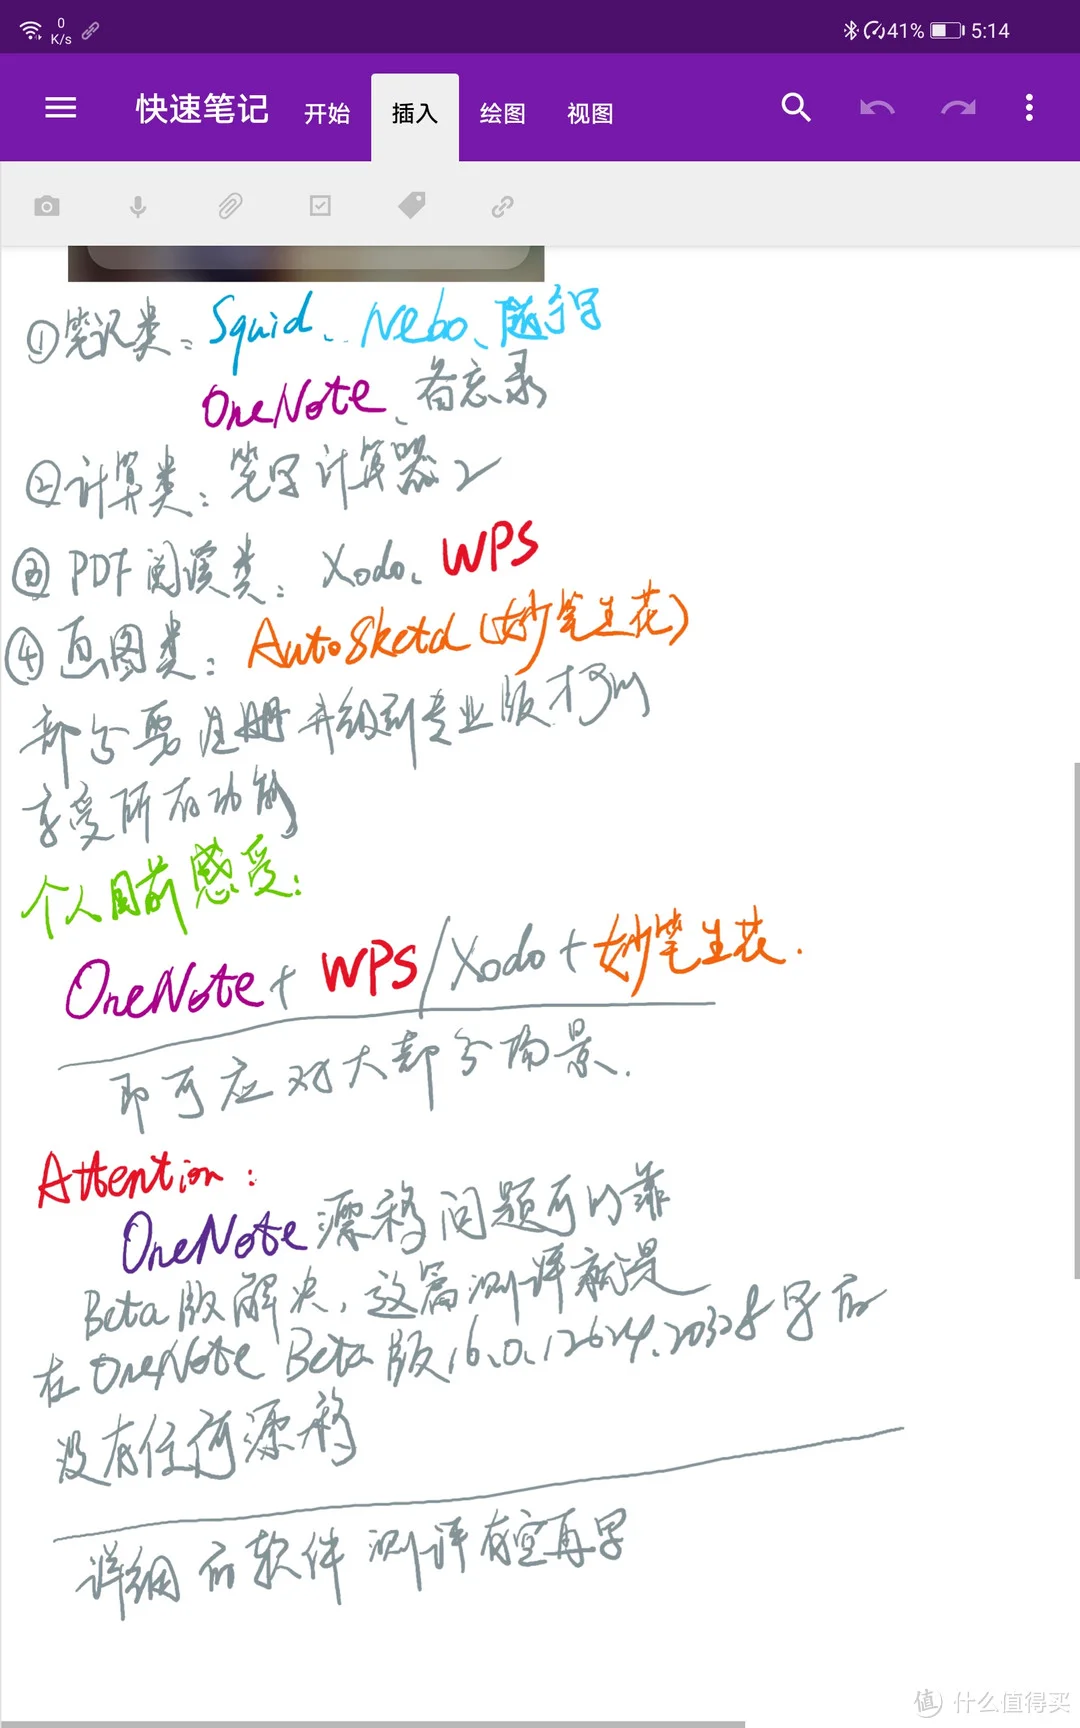 0 K/s 41% 5:14
快速笔记 开始 插入 绘图 视图
①笔记类：Squid、Nebo、随手写
OneNote、备忘录
②计算类：笔写计算器2
③PDF阅读类：Xodo、WPS
④画图类：AutoSketch(妙笔生花)
部分要注册升级到专业版才可以
享受所有功能
个人目前感受：
OneNote + WPS/Xodo + 妙笔生花.
即可应对大部分场景.
Attention：
OneNote漂移问题可以靠
Beta版解决，这篇测评就是
在OneNote Beta版16.0.12624.20328手写后
没有任何漂移
详细的软件测评有空再写
值 什么值得买